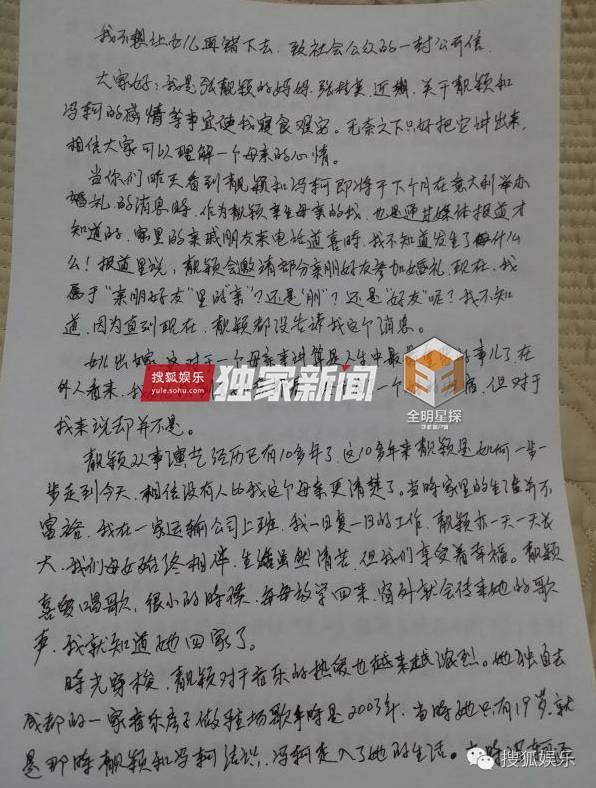 我不想让女儿再错下去,致社会公众的一封公开信
大家好:我是张靓颖的妈妈,张桂英,近期,关于靓颖和
冯轲的感情等事宜使我寝食难安。无奈之下只好把它讲出来,
相信大家可以理解一个母亲的心情。
当你们昨天看到靓颖和冯轲即将于下个月在意大利举办
婚礼的消息时,作为靓颖亲生母亲的我,也是通过媒体报道才
知道的,家里的亲戚朋友来电话道喜时,我不知道发生了每什么
么!报道里说,靓颖会邀请部分亲朋好友参加婚礼,现在,我
属于“亲朋好友”里的“亲”?还是“朋”?还是“好友”呢?我不知
道,因为直到现在,靓颖都没告诉我这个消息。
女儿出嫁,这对于一个母亲来讲算是人生中最 事儿了,在
外人看来,我 一个 ,但对于
我来说却并不是。
搜狐娱乐
yule.sohu.com
独家新闻
全明星探
靓颖从事演艺经历已有10多年了,这10多年来靓颖是如何一步一
步走到今天,相信没有人比我这个母亲更清楚了。当时家里的生活并不
富裕,我在一家运输公司上班,我一日复一日的工作,靓颖亦一天一天长
大,我们母女始终相伴,生活虽然清苦,但我们享受着幸福。靓颖
喜爱唱歌,很小的时候,每每放学回来,窗外就会传来她的歌
声,我就知道她回家了。
时光穿梭,靓颖对于音乐的热爱也越来越浓烈。她独自去
成都的一家音乐房子做驻场歌手时是2003年,当时她只有19岁,就
是那时靓颖和冯轲结识,冯轲走入了她的生活。
搜狐娱乐